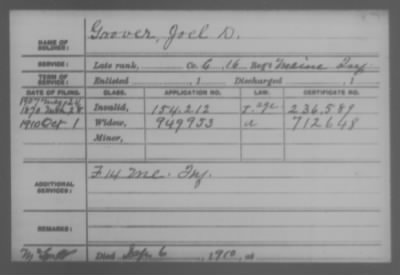 NAME OF SOLDIER: Grover, Joel D.
SERVICE: Late rank, Co. G, 16 Reg't Maine Inf
TERM OF SERVICE: Enlisted , 1 Discharged , 1
DATE OF FILING. CLASS. APPLICATION NO. LAW. CERTIFICATE NO.
1907
1870 Invalid, 154.212 age 236,589
1910 Oct 1 Widow, 949953 712648
Minor,
ADDITIONAL SERVICES: F 14 Me. Inf.
REMARKS:
Died Sep. 6, 1910, at